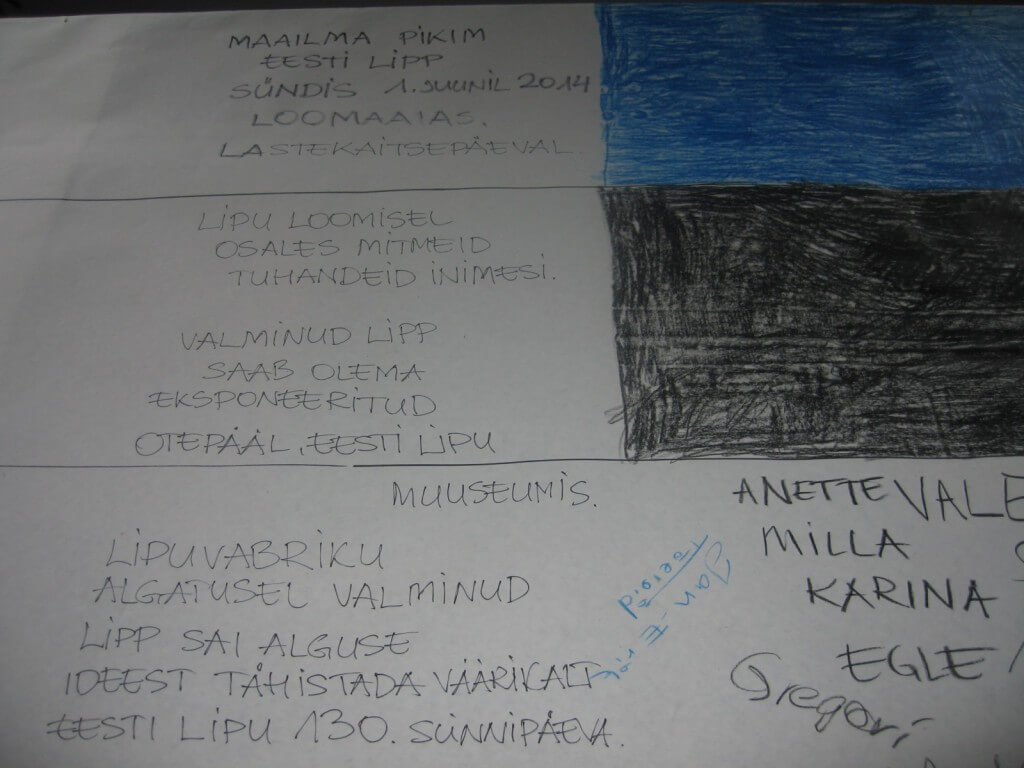 MAAILMA PIKIM
EESTI LIPP
SÜNDIS 1. JUUNIL 2014
LOOMAAIAS.
LASTEKAITSEPÄEVAL
LIPU LOOMISEL
OSALES MITMEID
TUHANDEID INIMESI.
VALMINUD LIPP
SAAB OLEMA
EKSPONEERITUD
OTEPÄÄL, EESTI LIPU
MUUSEUMIS.
LIPUVABRIKU
ALGATUSEL VALMINUD
LIPP SAI ALGUSE
IDEEST TÄHISTADA VÄÄRIKALT
EESTI LIPU 130. SÜNNIPÄEVA.
ANETTE VALE
MILLA
KARINA
EGLE
Gregor